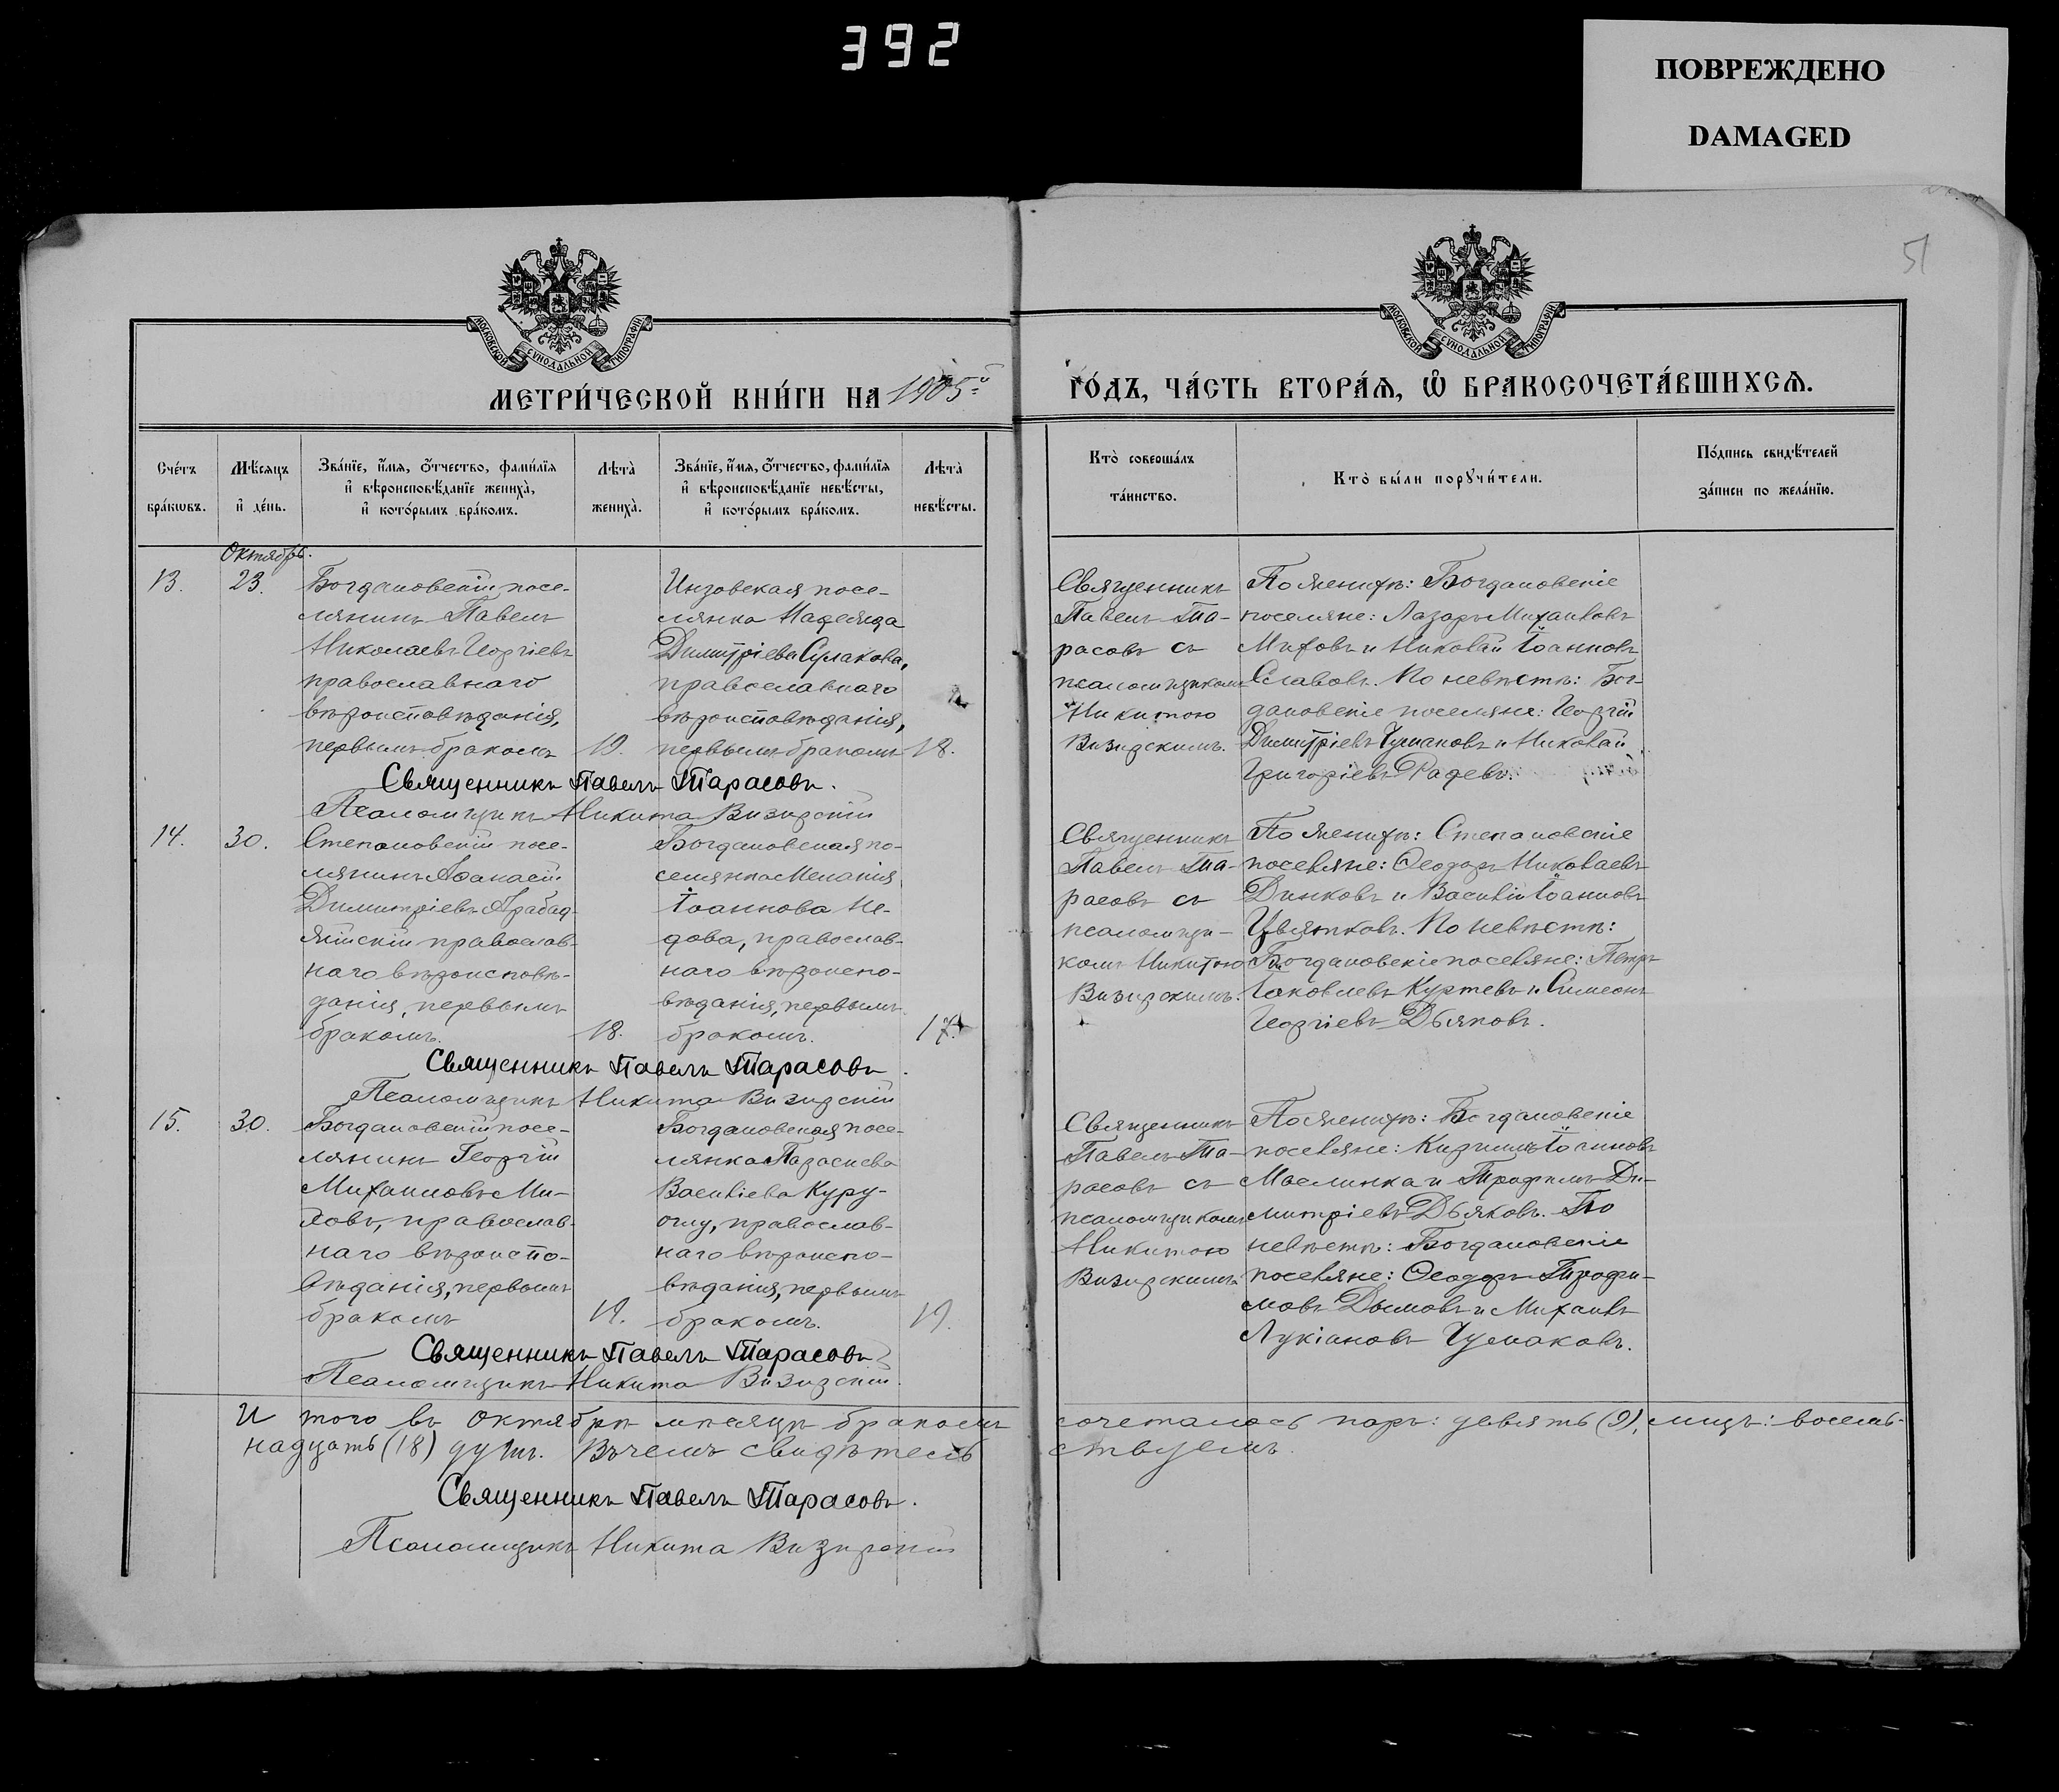 392
ПОВРЕЖДЕНО
DAMAGED
51
МОСКОВСКОЙ СѴНОДАЛЬНОЙ ТИПОГРАФІИ
МОСКОВСКОЙ СѴНОДАЛЬНОЙ ТИПОГРАФІИ
МЕТРИ́ЧЕСКОЙ КНИ́ГИ НА 1905й
ГО́ДЪ, ЧА́СТЬ ВТОРА́Ѧ, Ѽ БРАКОСОЧЕТА́ВШИХСѦ.
Сче́тъ бра́кѡвъ.
Мѣ́сяцъ и҆ де́нь.
Зва́нїе, и҆́мя, ѻ҆́тчество, фами́лїя и҆ вѣроисповѣ́данїе жениха̀, и҆ кото́рымъ бра́комъ.
Лѣта̀ жениха̀.
Зва́нїе, и҆́мя, ѻ҆́тчество, фами́лїя и҆ вѣроисповѣ́данїе невѣ́сты, и҆ кото́рымъ бра́комъ.
Лѣта̀ невѣ́сты.
Кто̀ соверша́лъ та́инство.
Кто̀ бы́ли порꙋчи́тели.
По́дпись свидѣ́телей за́писи по жела́нїю.
Октябрь.
13.
23.
Богдановскій посе-
лянинъ Павелъ
Николаевъ Георгіевъ
православнаго
вѣроисповѣданія,
первымъ бракомъ
19.
Инзовская посе-
лянка Надежда
Димитріева
православнаго
вѣроисповѣданія,
первымъ бракомъ
18.
Священникъ
Павелъ Та-
расовъ съ
псаломщикомъ
Никитою
Визирскимъ.
По женихѣ: Богдановскіе
поселяне: Лазарь Михаиловъ
Митовъ и Николай Іоанновъ
Славовъ. По невѣстѣ: Бог-
дановскіе поселяне: Георгій
Димитріевъ Чумаковъ и Николай
Григоріевъ Радевъ.
Священникъ Павелъ Тарасовъ.
Псаломщикъ Никита Визирскій
14.
30.
Степановскій посе-
лянинъ Аѳанасій
Димитріевъ Арабад-
жійскій православ-
наго вѣроисповѣ-
данія, первымъ
бракомъ.
18.
Богдановская по-
селянка Меланія
Іоаннова Не-
дова, православ-
наго вѣроиспо-
вѣданія, первымъ
бракомъ.
17.
Священникъ
Павелъ Та-
расовъ съ
псаломщи-
комъ Никитою
Визирскимъ.
По женихѣ: Степановскіе
поселяне: Ѳеодоръ Николаевъ
Динковъ и Василій Іоанновъ
Цвятковъ. По невѣстѣ:
Богдановскіе поселяне: Петръ
Іаковлевъ Куртевъ и Симеонъ
Георгіевъ Дьяковъ.
Священникъ Павелъ Тарасовъ
Псаломщикъ Никита Визирскій
15.
30.
Богдановскій посе-
лянинъ Георгій
Михаиловъ Ми-
православ-
наго вѣроиспо-
вѣданія, первымъ
бракомъ
19.
Богдановская посе-
лянка Параскева
Васильева Куру-
оглу, православ-
наго вѣроиспо-
вѣданія, первымъ
бракомъ.
19.
Священникъ
Павелъ Та-
расовъ съ
псаломщикомъ
Никитою
Визирскимъ
По женихѣ: Богдановскіе
поселяне:
Маслинка и Трофимъ Ди-
митріевъ Дьяковъ. По
невѣстѣ: Богдановскіе
поселяне: Ѳеодоръ Трофи-
мовъ Дымовъ и Михаилъ
Лукіановъ Чумаковъ.
Священникъ Павелъ Тарасовъ
Псаломщикъ Никита Визирскій.
Итого въ октябрѣ мѣсяцѣ бракомъ сочеталось паръ: девять (9), лицъ: восемь-
надцать (18) душъ. Въ чемъ свидѣтель ствуемъ.
Священникъ Павелъ Тарасовъ.
Псаломщикъ Никита Визирскій